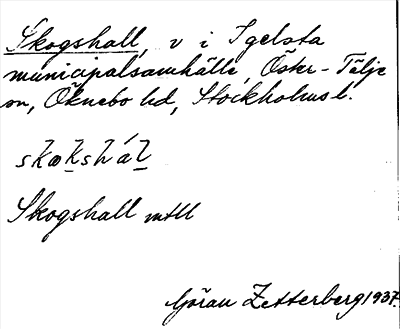 Skogshall, v i Igelsta
municipalsamhälle, Öster-Tälje
sn, Öknebo hd, Stockholms l.
Skogshall mtll
Göran Zetterberg 1937.